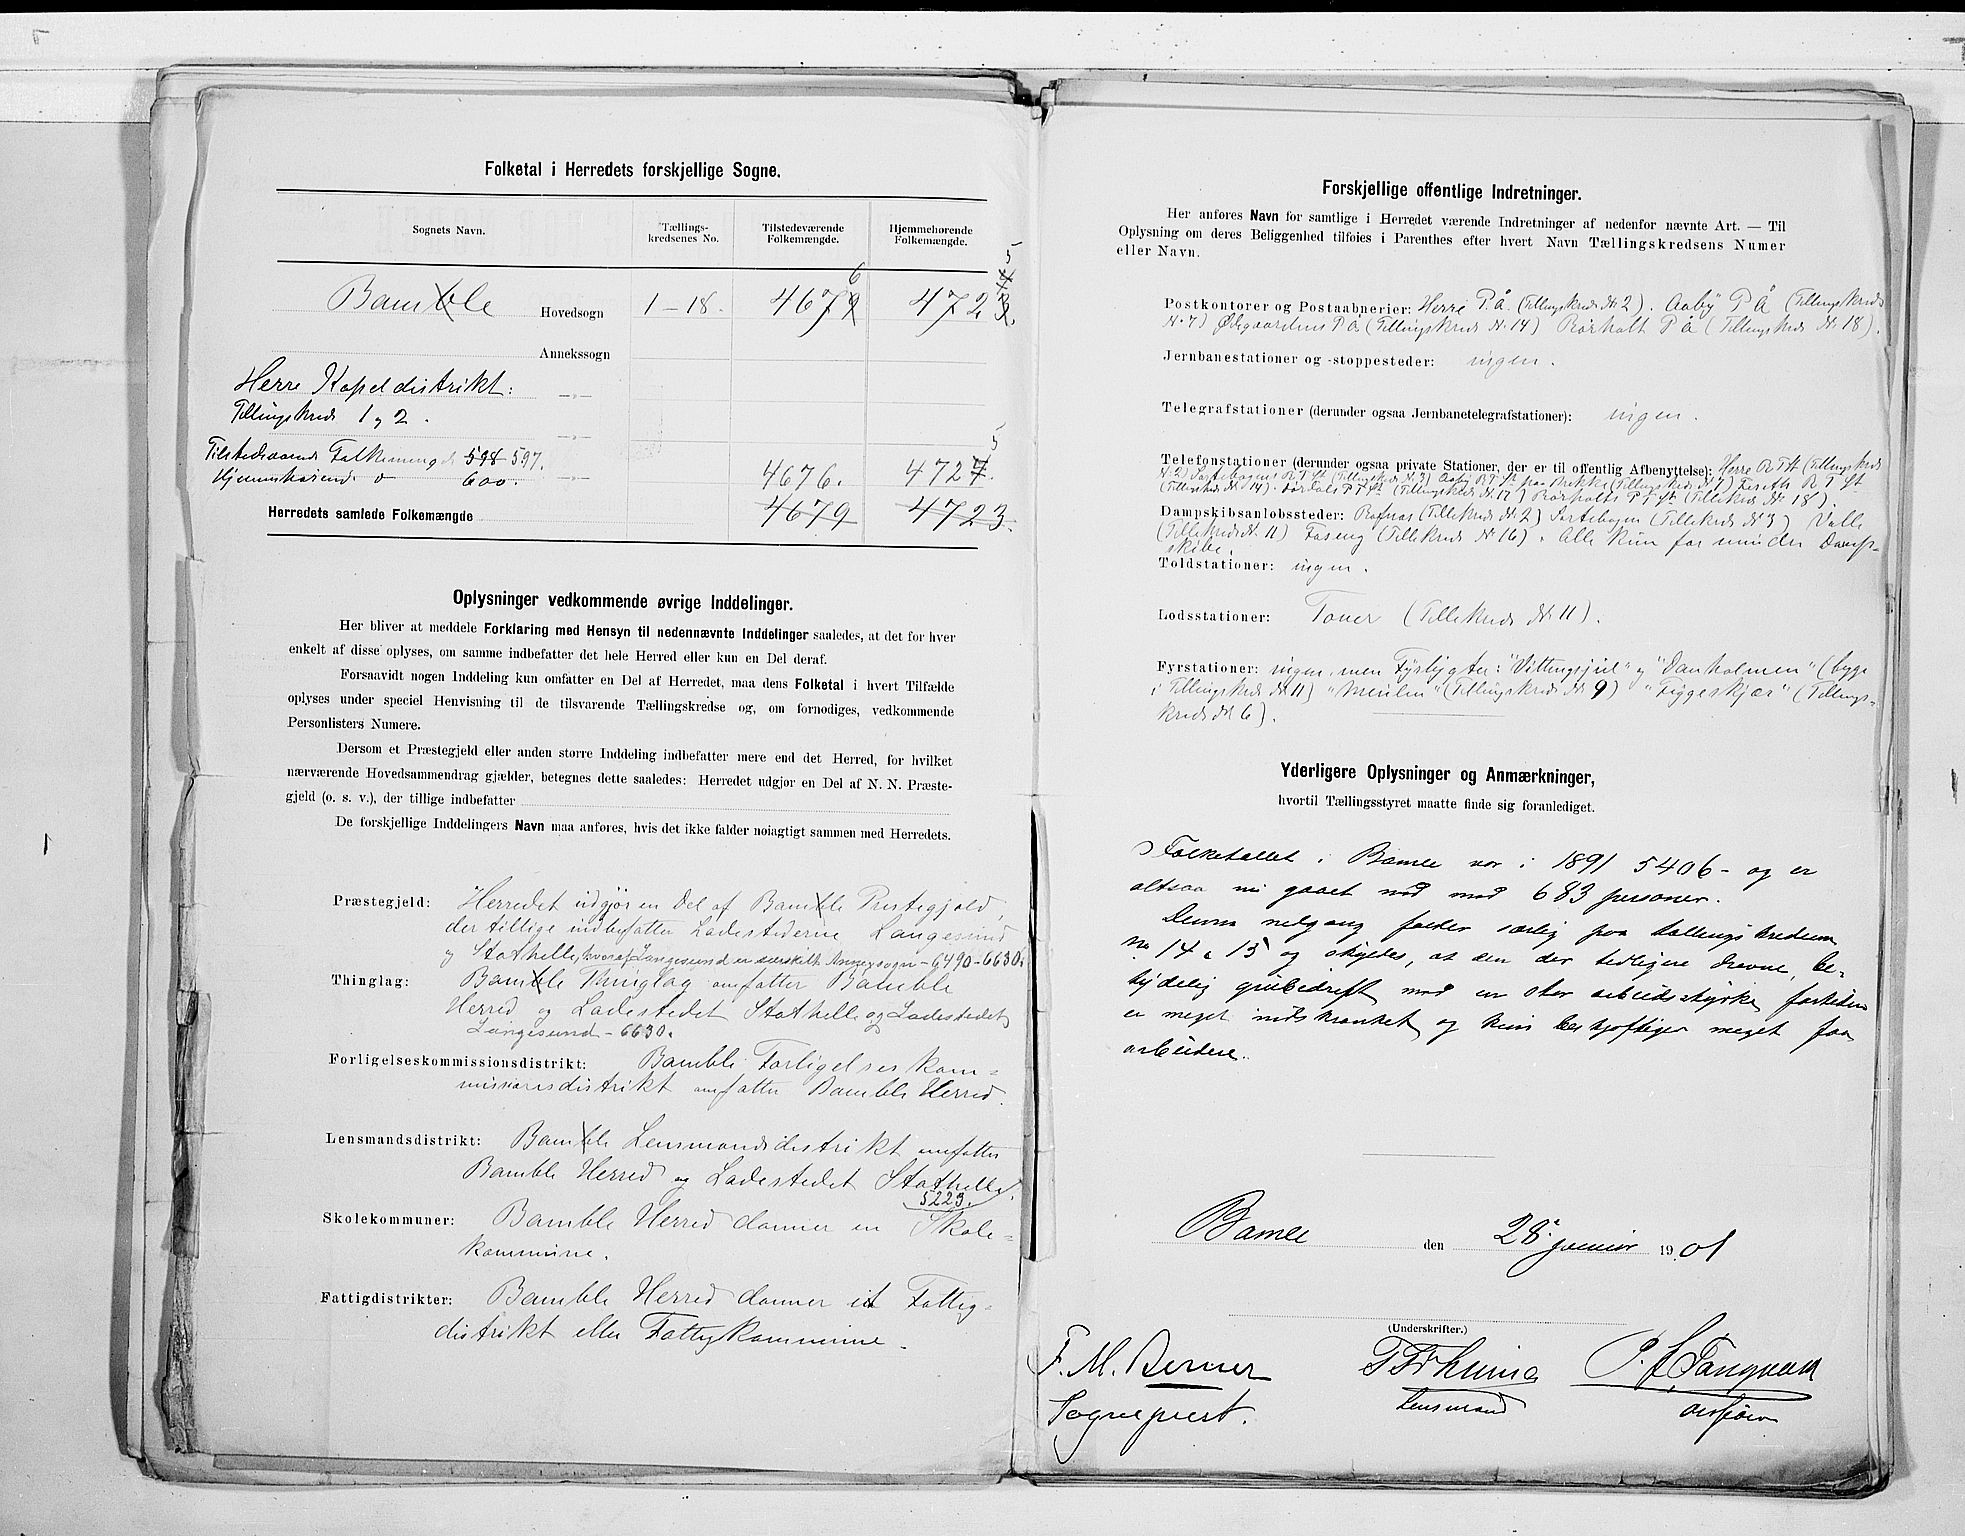 Folketal i Herredets forskjellige Sogne.
Sognets Navn.
Tællings-
kredsenes No.
Tilstedeværende
Folkemængde.
Hjemmehørende
Folkemængde.
5
6 4
Bamble Hovedsogn 1-18. 4679 4723.
Annekssogn
Herre Kapeldistrikt:
Tællingskreds 1 og 2.
5
Tilstedeværende Folkemængde 598 597. 4676. 4724.
Hjemmehørende 600.
Herredets samlede Folkemængde 4679 4723.
Oplysninger vedkommende øvrige Inddelinger.
Her bliver at meddele Forklaring med Hensyn til nedennævnte Inddelinger saaledes, at det for hver
enkelt af disse oplyses, om samme indbefatter det hele Herred eller kun en Del deraf.
Forsaavidt nogen Inddeling kun omfatter en Del af Herredet, maa dens Folketal i hvert Tilfælde
oplyses under speciel Henvisning til de tilsvarende Tællingskredse og, om fornødiges, vedkommende
Personlisters Numere.
Dersom et Præstegjeld eller anden større Inddeling indbefatter mere end det Herred, for hvilket
nærværende Hovedsammendrag gjælder, betegnes dette saaledes: Herredet udgjør en Del af N. N. Præste-
gjeld (o. s. v.), der tillige indbefatter
De forskjellige Inddelingers Navn maa anføres, hvis det ikke falder nøiagtigt sammen med Herredets.
Præstegjeld: Herredet udgjør en Del af Bamble Prestegjeld,
der tillige indbefatter Ladestederne Langesund
og Stathelle, hvoraf Langesund er særskilt Annexsogn - 6490 - 6630.
Thinglag: Bamble Thinglag omfatter Bamble
Herred og Ladestedet Stathelle og Ladestedet
Langesund - 6630.
Forligelseskommissionsdistrikt: Bamble Forligelseskom=
missionsdistrikt omfatter Bamble Herred.
Lensmandsdistrikt: Bamble Lensmandsdistrikt omfatter
Bamble Herred og Ladestedet Stathelle.
5223.
Skolekommuner: Bamble Herred danner en Skole=
kommune.
Fattigdistrikter: Bamble Herred danner et Fattig=
distrikt eller Fattigkommune.
Forskjellige offentlige Indretninger.
Her anføres Navn for samtlige i Herredet værende Indretninger af nedenfor nævnte Art. — Til
Oplysning om deres Beliggenhed tilføies i Parenthes efter hvert Navn Tællingskredsens Numer
eller Navn.
Postkontorer og Postaabnerier: Herre P.Å. (Tællingskreds № 2). Aaby P Å (Tællingskreds
№ 7) Ødegaardens P Å (Tællingskreds № 14) Rørholt P Å (Tællingskreds № 18).
Jernbanestationer og -stoppesteder: ingen.
Telegrafstationer (derunder ogsaa Jernbanetelegrafstationer): ingen.
Telefonstationer (derunder ogsaa private Stationer, der er til offentlig Afbenyttelse): Herre R T St (Tællingskreds
№ 2) R T St (Tællingskreds № 3) Aaby R T St paa Brekke (Tællingskreds № 7) R T St
(Tællingskreds № 14). P T St (Tællingskreds № 17) Rørholts P T St (Tællekreds № 18).
Dampskibsanløbssteder: Rafnæs (Tællekreds № 2) (Tællekreds № 3) Valle
(Tællekreds № 11) Foseng (Tællekreds № 16). Alle kun for mindre Damp=
skibe.
Toldstationer: ingen.
Lodsstationer: (Tællekreds № 11).
Fyrstationer: ingen, men Fyrlygter: "" og "Danholmen" (begge
i Tællingskreds № 11) "" (Tællingskreds № 9) "Figgeskjær" (Tællings=
kreds № 6).
Yderligere Oplysninger og Anmærkninger,
hvortil Tællingsstyret maatte finde sig foranlediget.
Folketallet i Bamle var i 1891 5406 - og er
altsaa nu gaaet ned med 683 personer.
Denne nedgang falder særlig paa tællingskredsene
no 14 & 15 og skyldes, at den der tidligere drevne, be=
tydelig grubedrift med en stor arbeidsstyrke fortiden
er meget indskrænket og kun beskjæftiger meget faa
arbeidere.
Bamle den 28 januar 1901
(Underskrifter.)
F. M. Berner
Sogneprest.
Lensmand
P. J. Tangvald
ordfører